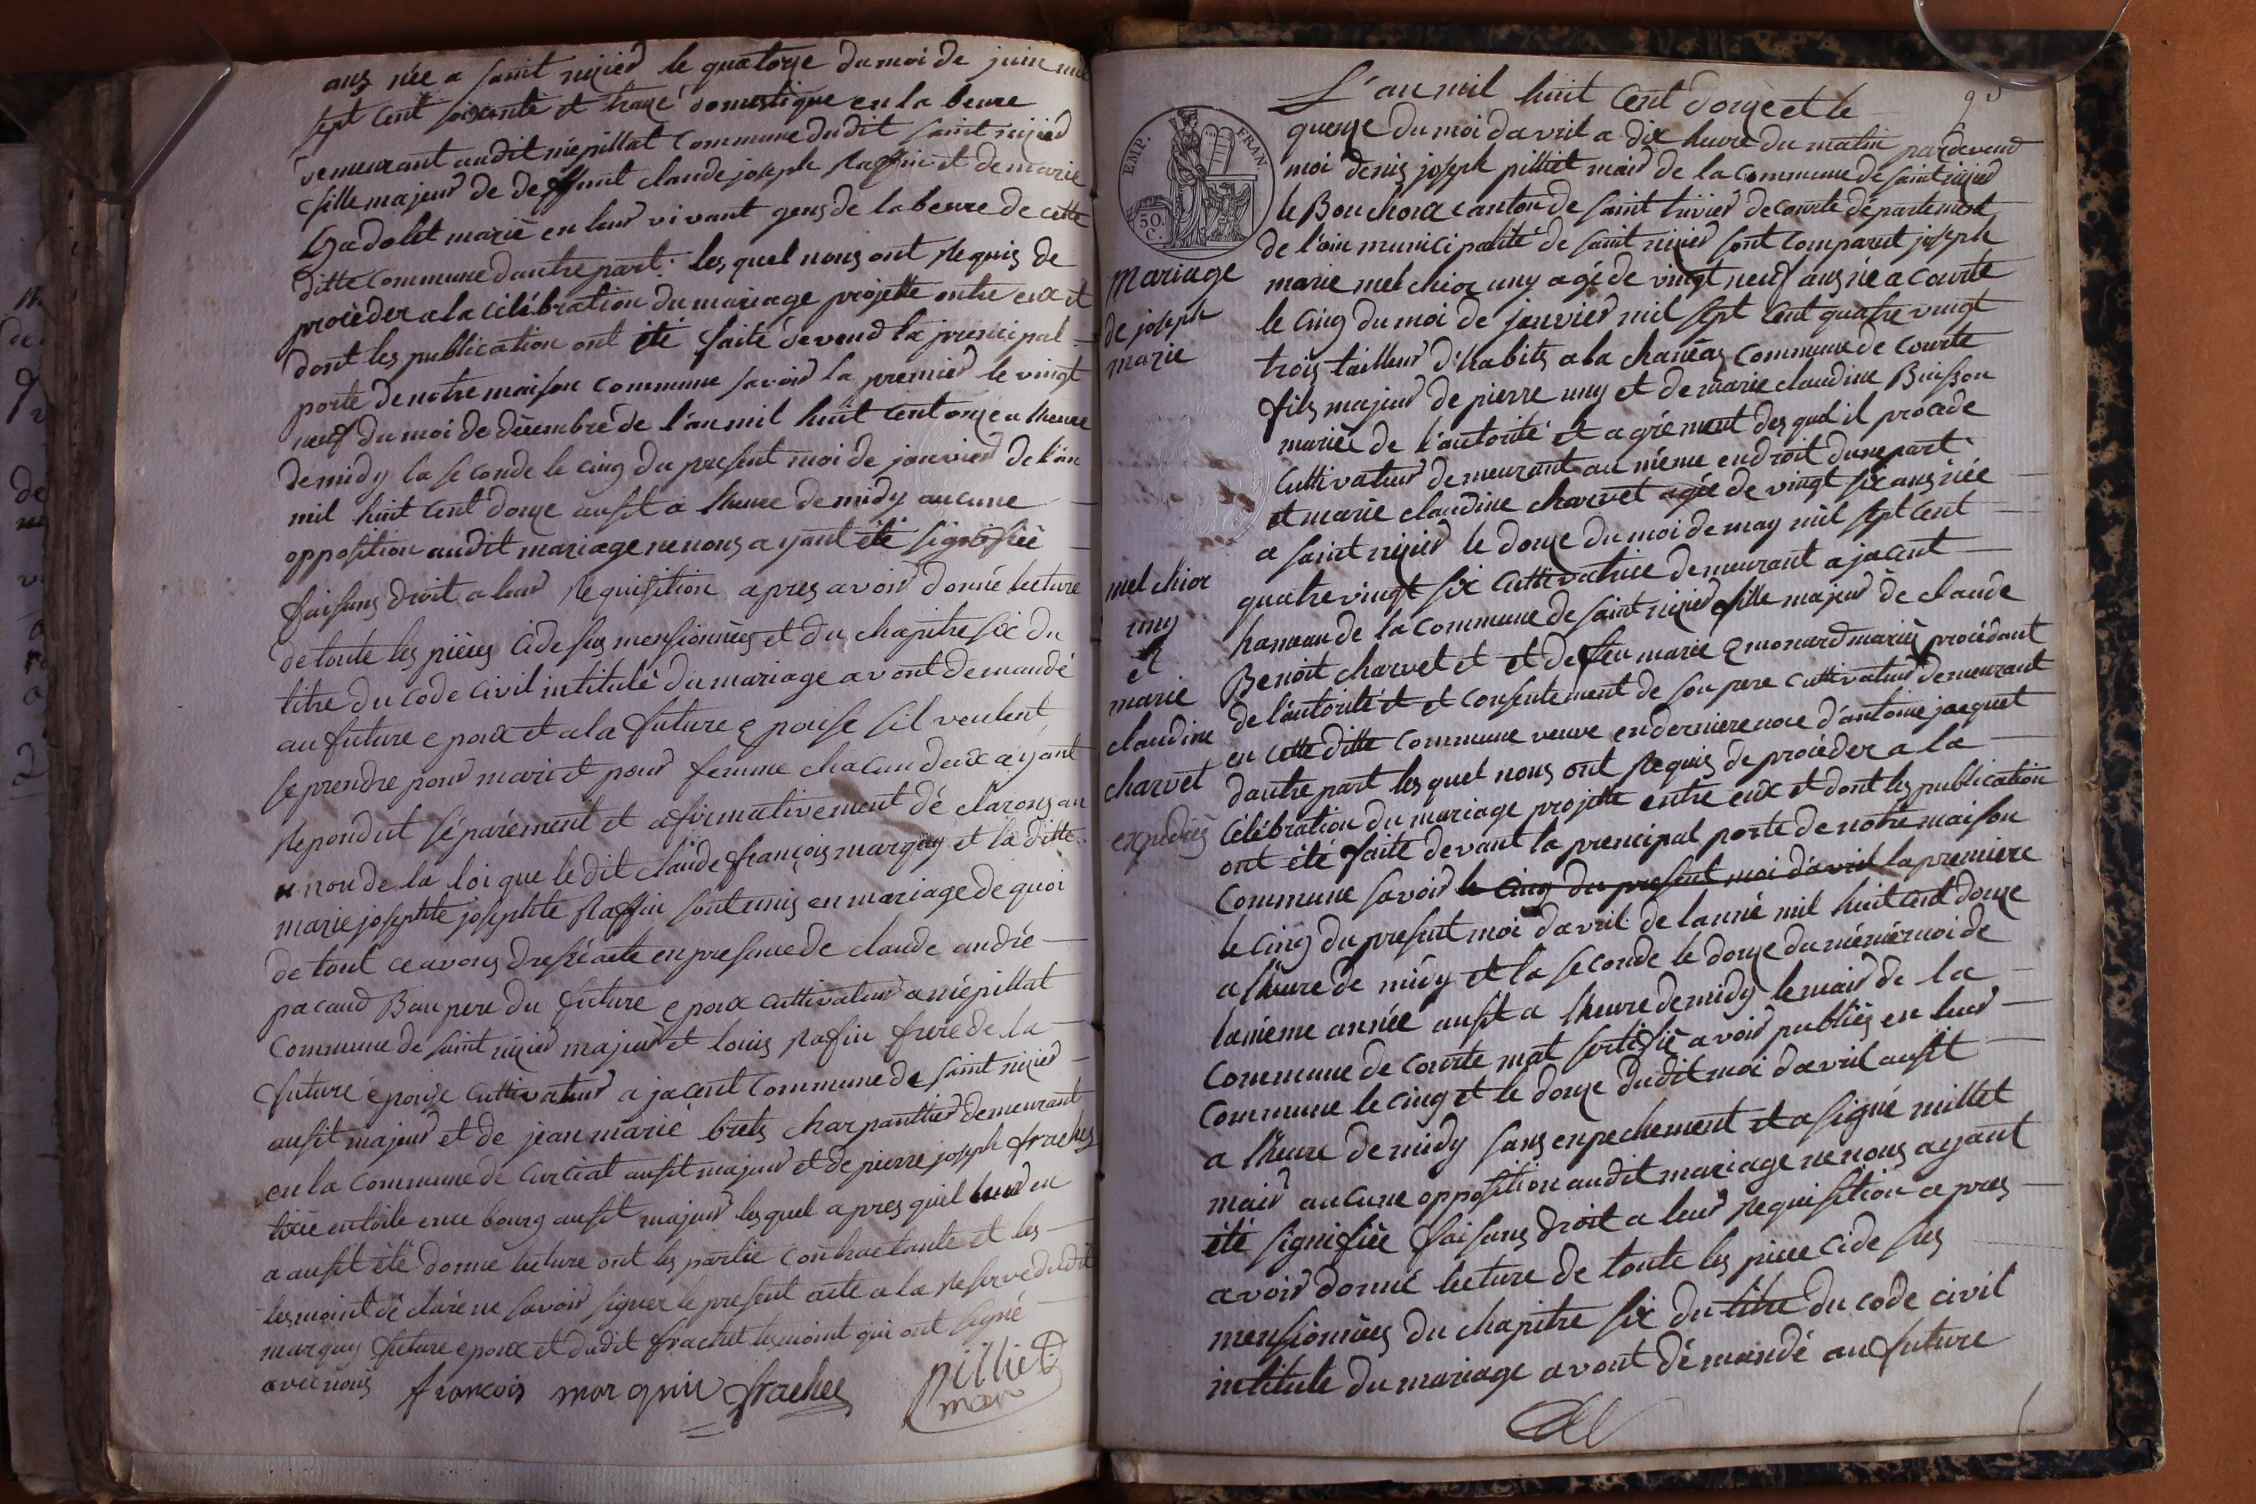 ans née a saint nizied le quatorze du moi de juin mil
sept cent soixante et traze domestique en la beure
demeurant audit mépillat commune dudit saint nizied
fille majeur de deffunt claude joseph raffin et de marie
gadolet marié en leur vivant gens de labeure de cette
ditte commune dautre part. les quel nous ont requis de
procéder a la célébration du mariage projetté entre eux et
dont les publication ont été faite devend la principal
porte de notre maison commune savoir la premier le vingt
neuf du moi de décembre de l'an mil huit cent onze a lheure
de midy la seconde le cinq du present moi de janvier de l'an
mil huit cent douze ausit a lheure de midy aucune
opposition audit mariage ne nous ayant été signifiée
faisans droit a leur requisition apres avoir donné lecture
de toute les pièces cide sus mensionnées et du chapitre six du
titre du code civil intitulé du mariage avont demandé
au future epoux et a la future epouse sil veulent
se prendre pour mari et pour femme chacun deux ayant
repondut séparément et afirmativement déclarons au
nom de la loi que ledit claude françois marguy et la ditte
marie josephte josephte raffin sont unis en mariage de quoi
de tout ce avons dressé acte en presence de claude andré
pacaud Beau pere du future epoux cultivateur a mépillat
commune de saint nizier majeur et louis rafin frere de la
future épouse cultivateur a jacent commune de saint nizied
ausit majeur et de jean marie buts charpantier demeurant
en la commune de curciat ausit majeur et de pierre joseph frachet
en toile en ce bourg ausit majeur lesquel apres quil leur en
a ausit été donné lecture ont les partie contractante et les
temoint déclaré ne savoir signer le present acte a la reserve dudit
marguy future epoux et dudit frachet temoint qui ont signé
avec nous françois marguin frachet pilliet
mair
90
EMP. FRAN
50 C.
L'an mil huit cent douze et le
quenze du moi davril a dix heure du matin pardevend
moi denis joseph pilliet maire de la commune de saint nizied
le Bouchoux canton de saint trivier de courte département
de l'ain municipalité de saint nizier sont comparut joseph
marie melchior uny agé de vingt neuf ans né a courte
le cinq du moi de janvier mil sept cent quatre vingt
trois tailleur d'habits a la chanéas commune de courte
fils majeur de pierre uny et de marie claudine Buisson
mariée de l'autorité et agrément des quel il procede
cultivateur demeurant au même endroit dune part
et marie claudine charvet agée de vingt six ans née
a saint nizier le douze du moi de may mil sept cent
quatre vingt six cultivatrice demeurant a jacent
hameau de la commune de saint nizier fille majeur de claude
Benoit charvet et et de feu marie emonard mariés procédant
de l'autorité et et consentement de son pere cultivateur demeurant
en cette ditte commune veuve en derniere noce d'antoine jacquet
dautre part les quel nous ont requis de procéder a la
célébration du mariage projetté entre eux et dont les publication
ont été faite devant la prencipal porte de notre maison
commune savoir le cinq du present moi d'avril la premiere
le cinq du present moi d'avril de lanné mil huit cent douze
a lheure de midy et la seconde le douze du même moi de
la même année ausit a lheure de midy le mair de la
commune de courte mat sertifié avoir publiés en leur
commune le cinq et le douze dudit moi davril ausit
a lheure de midy sans enpechement et a signé millet
mair aucune opposition audit mariage ne nous ayant
été signifiée faisans droit a leur requisition apres
avoir donné lecture de toute les piece cide sus
mensionnées du chapitre six du titre du code civil
intitulé du mariage avont démandé au future
mariage
de joseph
marie
melchior
uny
et
marie
claudine
charvet
expediés